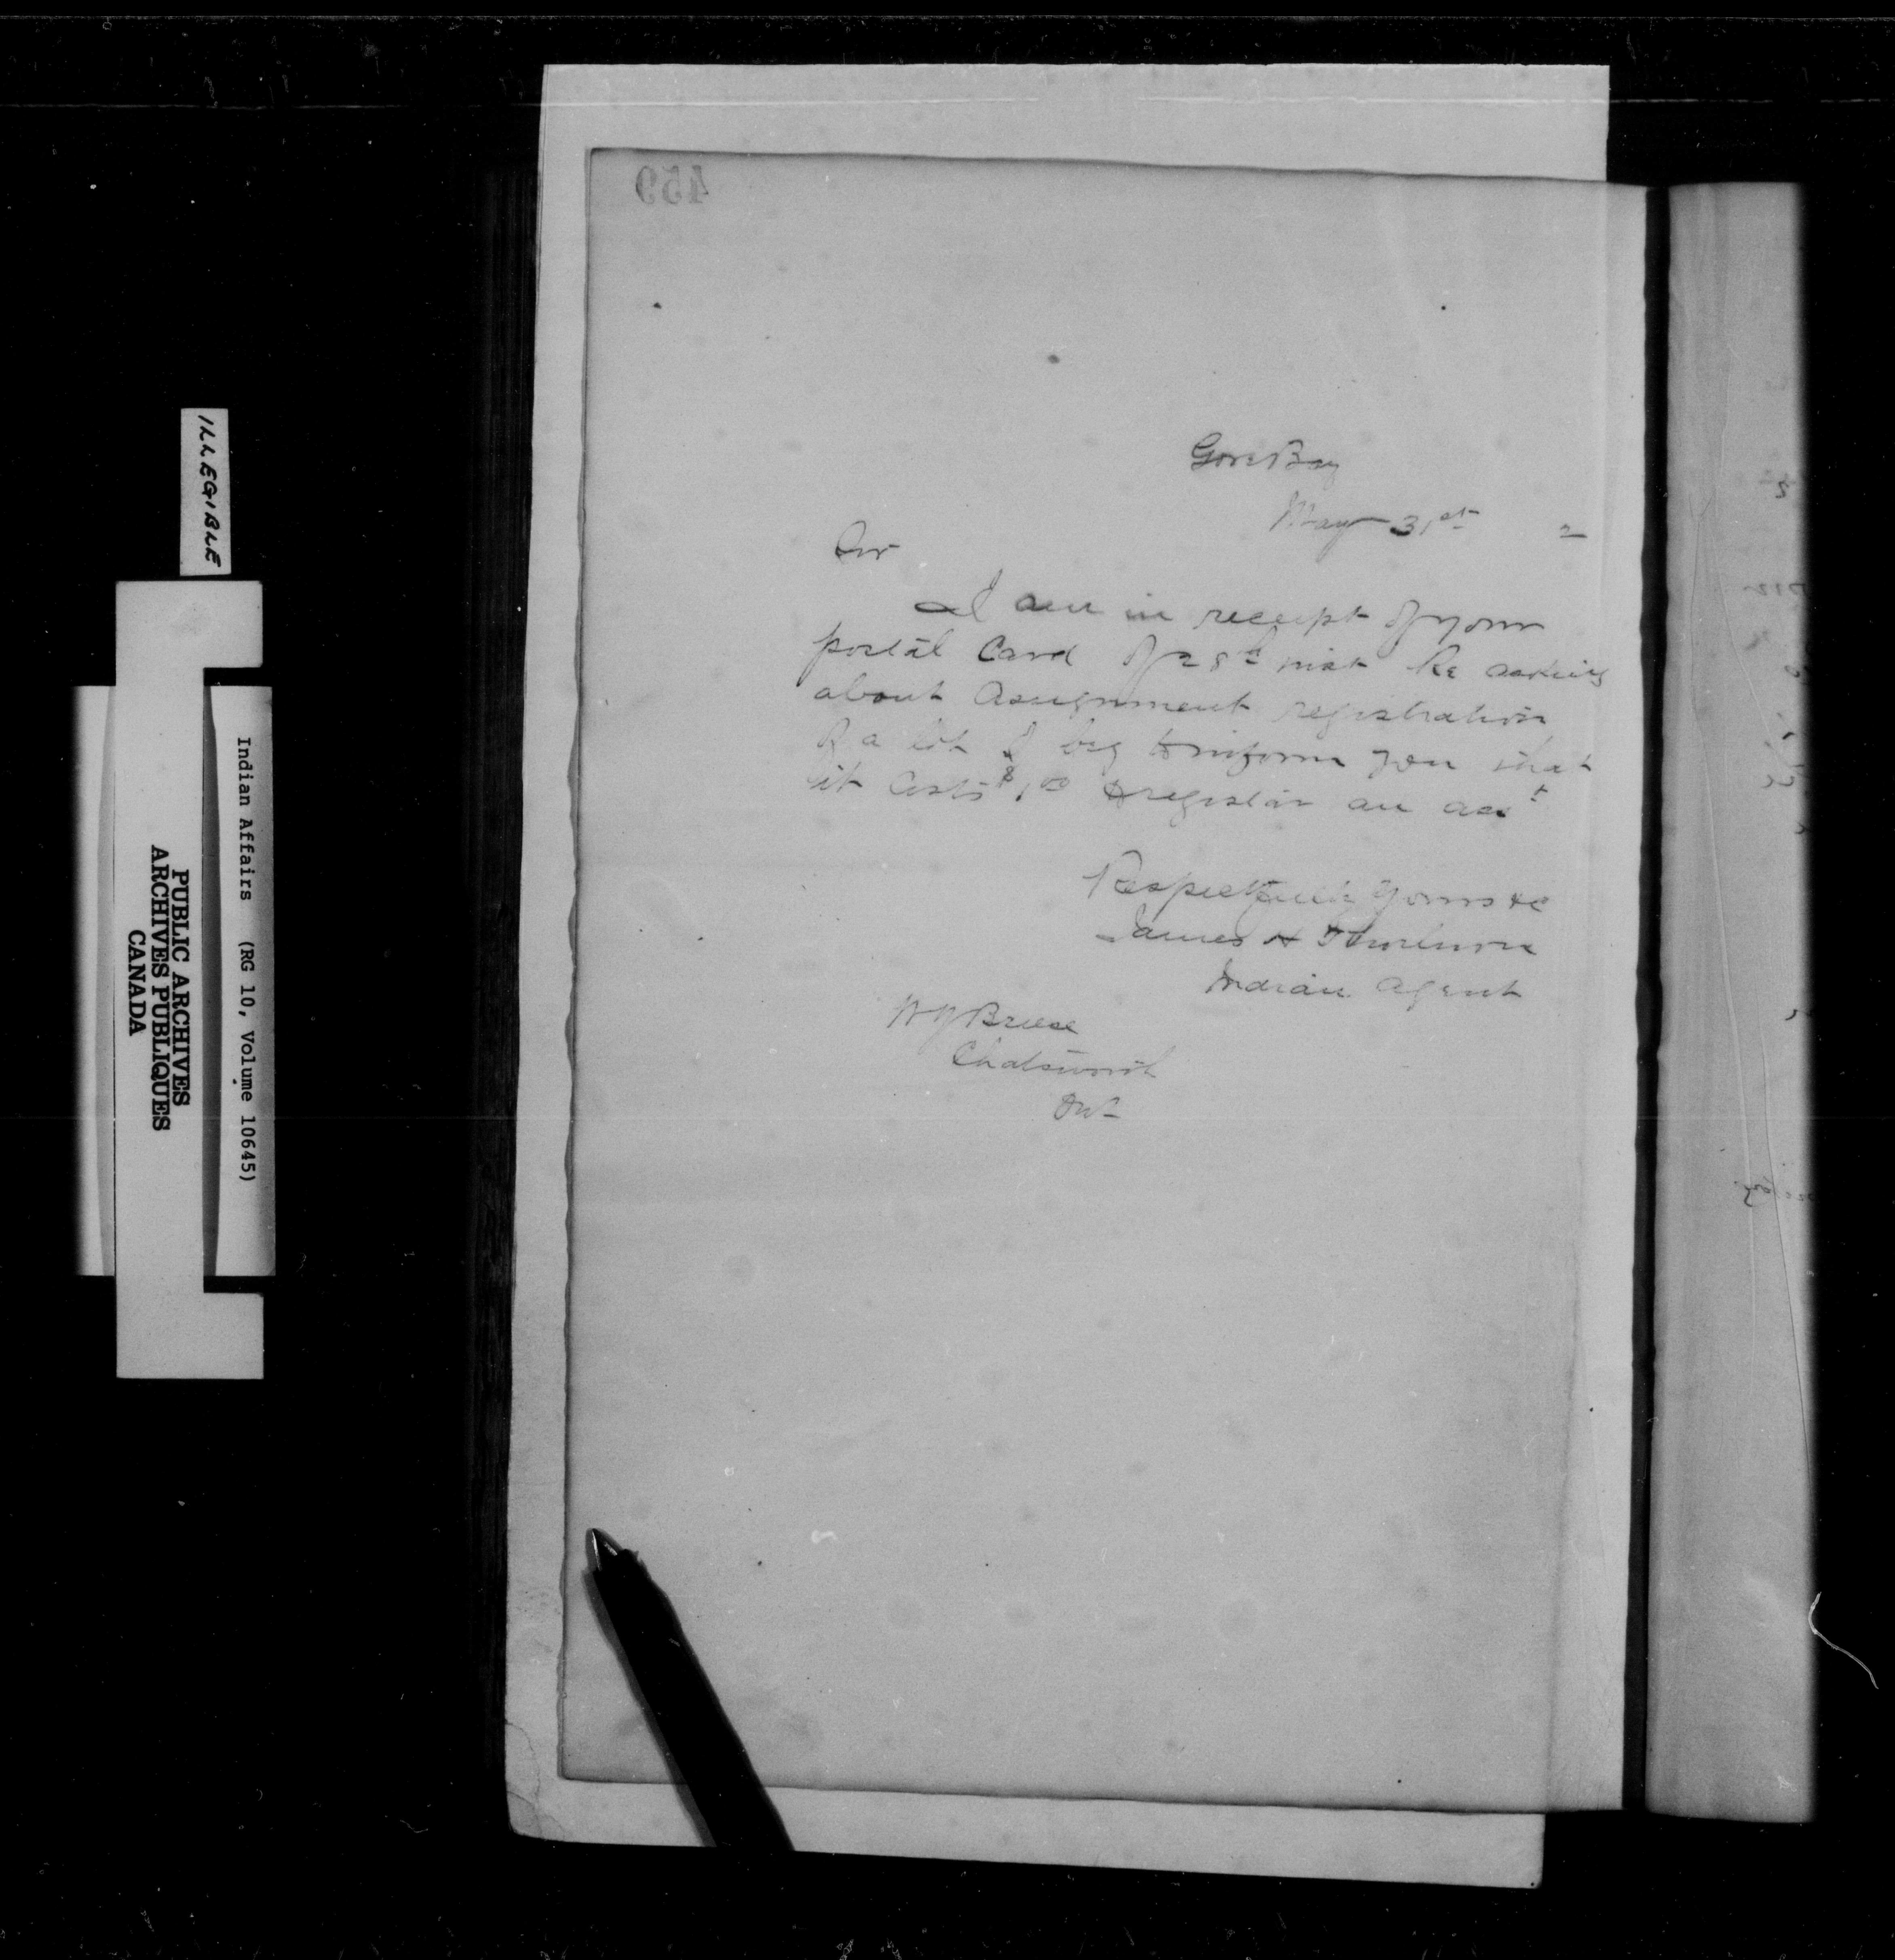 459
Gore Bay
May 31st 2
Sir
I am in receipt of your
postal Card of 28th inst Re asking
about Assignment registration
of a lot I beg to inform you that
it Costs $1.00 to register an asst
Respectfully Yours &c
James H Thorburn
Indian Agent
W J Breese
Chatsworth
Ont
ILLEGIBLE
Indian Affairs (RG 10, Volume 10645)
PUBLIC ARCHIVES
ARCHIVES PUBLIQUES
CANADA